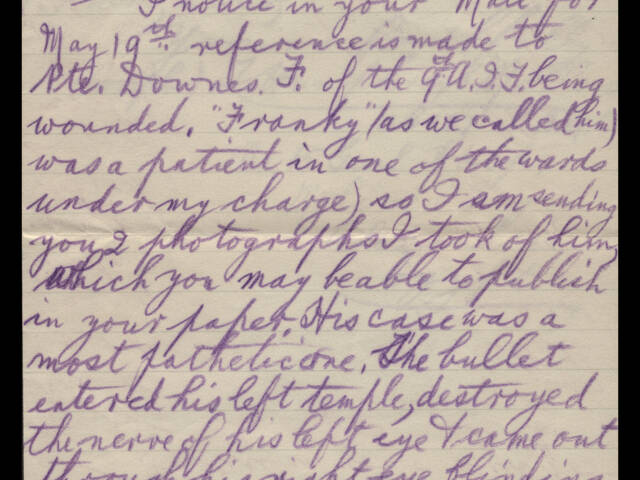 — I notice in your Mail for
May 19th reference is made to
Pte. Downes. F. of the 9th A.I.F. being
wounded. "Franky" (as we called him)
was a patient in one of the wards
under my charge) so I am sending
you 2 photographs I took of him,
which you may be able to publish
in your paper. His case was a
most pathetic one. The bullet
entered his left temple, destroyed
the nerve of his left eye & came out
through his right eye blinding